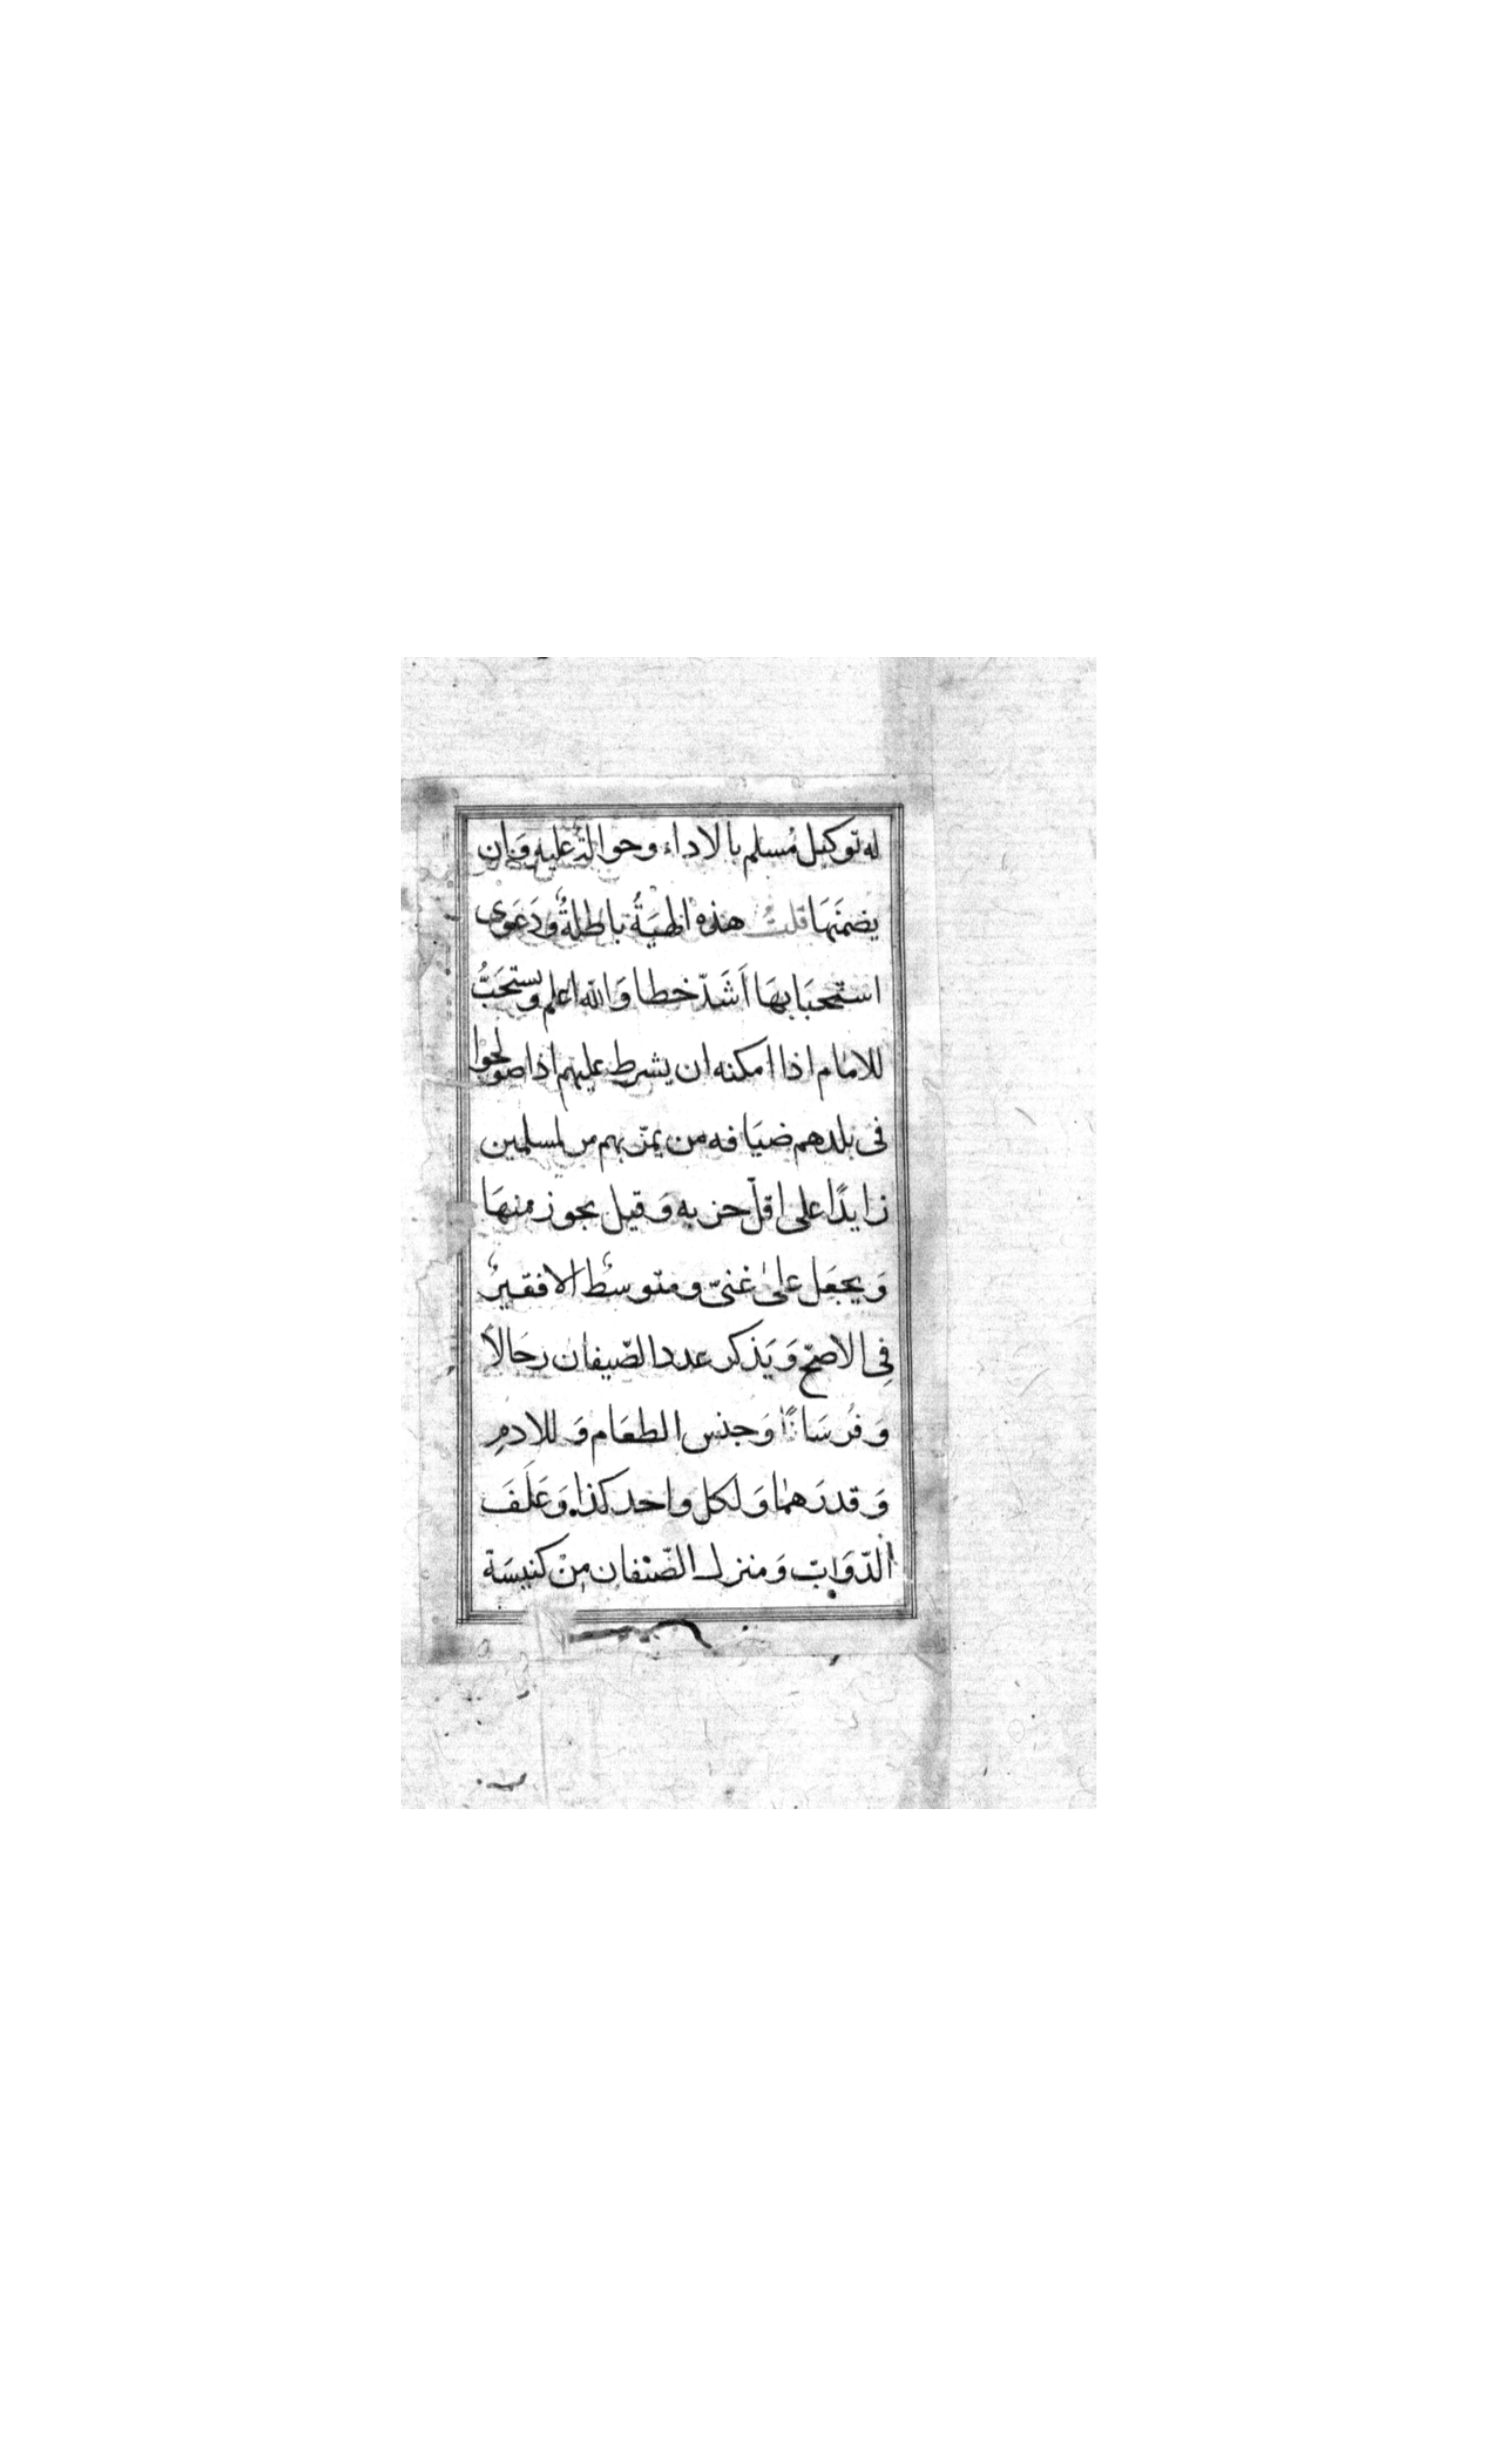 له توكيل مُسلم بالاداء وحوالتهُ عليه وَان
يضمَنَهَا قلتُ هذه الهَيَةُ باطلةٌ وَدَعَوى
استحبَابهَا اَشَدّ خطا وَالله اعلم ويستحَبُّ
للامام اذا امكنه ان يشرط عليهم اذا صولحوا
فى بلدهم ضيَافه من يمرّ بهم من المسلمين
زايدًا على اقلّ جزيه وَقيل يجوز منهَا
وَيجعَل علىٰ غنىّ ومتوسّط لا فقيرٌ
فِى الاصحّ وَيَذكر عدد الضّيفان رجَالاً
وَفُرسَانًا وَجنس الطعَام وَللادمِ
وَقدرَهمَا وَلكل واحد كذا وَعَلَفَ
الدّوَابّ وَمنزل الضّيفان مِنْ كنيسَة